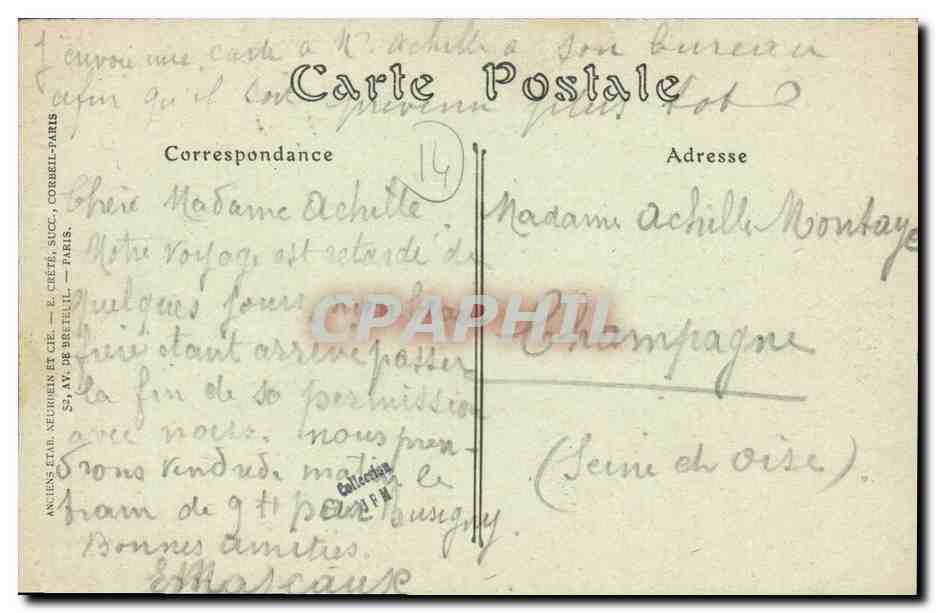 J'envoie une carte à Mr Achille à son bureau
afin qu'il soit prévenu plus tôt
Carte Postale
Correspondance
14
Adresse
Chère Madame Achille
Notre voyage est retardé de
quelques jours
frère étant arrivé passer
la fin de sa permission
avec nous. nous pren-
drons vendredi matin le
train de 9 H pour Busigny.
Bonnes amitiés.
Madame Achille Montaye
Champagne
(Seine et Oise).
ANCIENS ETAB. NEURDEIN ET CIE. — E. CRÉTÉ, SUCC., CORBEIL-PARIS
52, AV. DE BRETEUIL. — PARIS.
CPAPHIL
Collection
JPM